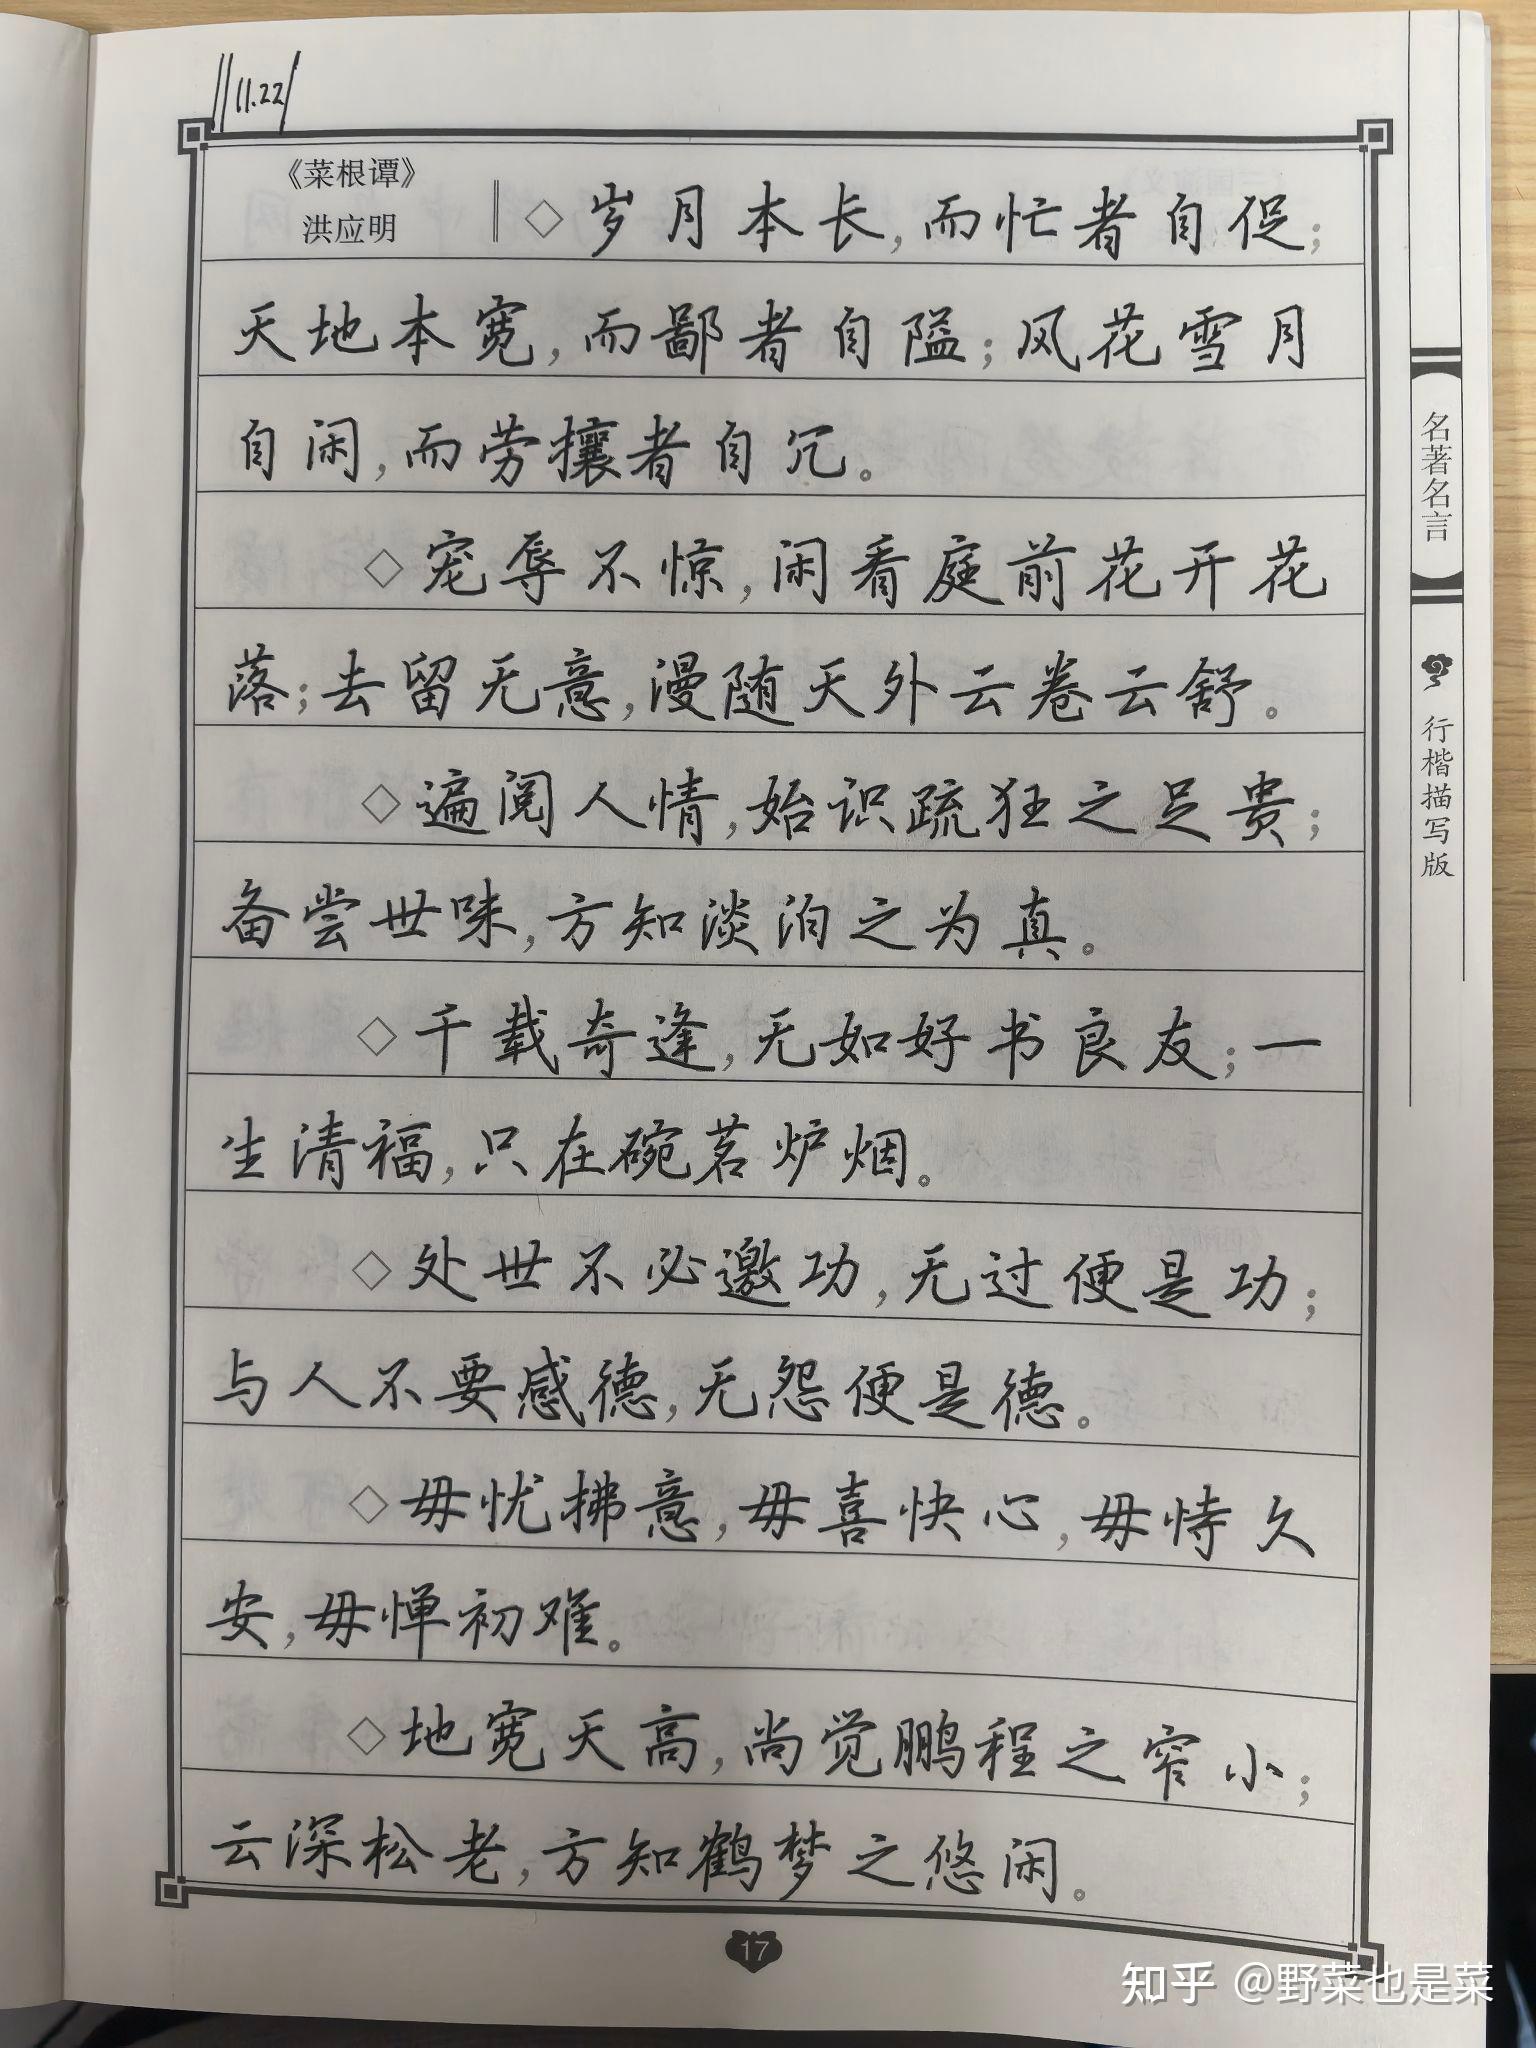 11.22
《菜根谭》
洪应明
◇岁月本长，而忙者自促；
天地本宽，而鄙者自隘；风花雪月
自闲，而劳攘者自冗。
◇宠辱不惊，闲看庭前花开花
落；去留无意，漫随天外云卷云舒。
◇遍阅人情，始识疏狂之足贵；
备尝世味，方知淡泊之为真。
◇千载奇逢，无如好书良友；一
生清福，只在碗茗炉烟。
◇处世不必邀功，无过便是功；
与人不要感德，无怨便是德。
◇毋忧拂意，毋喜快心，毋恃久
安，毋惮初难。
◇地宽天高，尚觉鹏程之窄小；
云深松老，方知鹤梦之悠闲。
17
名著名言
行楷描写版
知乎 @野菜也是菜